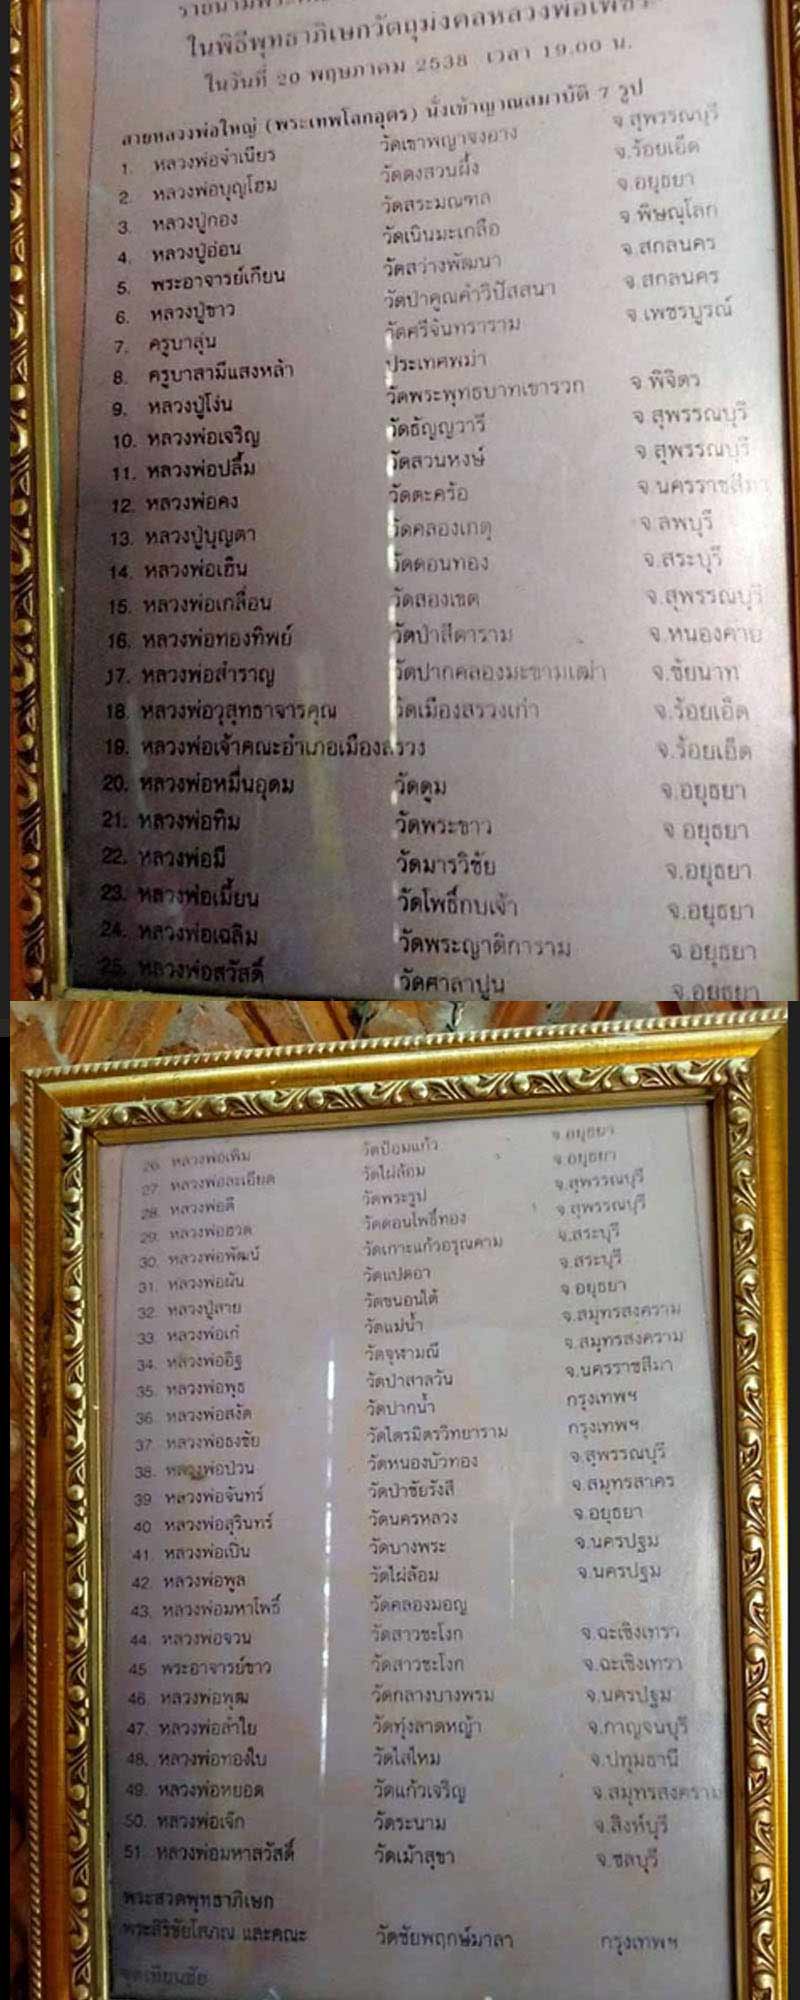 ในพิธีพุทธาภิเษกวัตถุมงคลหลวงพ่อเพชร
ในวันที่ 20 พฤษภาคม 2538 เวลา 19.00 น.
สายหลวงพ่อใหญ่ (พระเทพโลกอุดร) นั่งเข้าญาณสมาบัติ 7 รูป
1. หลวงพ่อจำเนียร วัดเขาพญาจงอาง จ.สุพรรณบุรี
2. หลวงพ่อบุญโฮม วัดดงสวนผึ้ง จ.ร้อยเอ็ด
3. หลวงปู่กอง วัดสระมณฑล จ.อยุธยา
4. หลวงปู่อ่อน วัดเนินมะเกลือ จ.พิษณุโลก
5. พระอาจารย์เกียน วัดสว่างพัฒนา จ.สกลนคร
6. หลวงปู่ขาว วัดป่าคูณคำวิปัสสนา จ.สกลนคร
7. ครูบาสุ่น วัดศรีจันทราราม จ.เพชรบูรณ์
8. ครูบาสามีแสงหล้า ประเทศพม่า
9. หลวงปู่โง่น วัดพระพุทธบาทเขารวก จ.พิจิตร
10. หลวงพ่อเจริญ วัดธัญญวารี จ.สุพรรณบุรี
11. หลวงพ่อปลื้ม วัดสวนหงษ์ จ.สุพรรณบุรี
12. หลวงพ่อคง วัดตะคร้อ จ.นครราชสีมา
13. หลวงปู่บุญตา วัดคลองเกตุ จ.ลพบุรี
14. หลวงพ่อเฮ็น วัดดอนทอง จ.สระบุรี
15. หลวงพ่อเกลื่อน วัดสองเขต จ.สุพรรณบุรี
16. หลวงพ่อทองทิพย์ วัดป่าสีดาราม จ.หนองคาย
17. หลวงพ่อสำราญ วัดปากคลองมะขามเฒ่า จ.ชัยนาท
18. หลวงพ่อวุสุทธาจารคุณ วัดเมืองสรวงเก่า จ.ร้อยเอ็ด
19. หลวงพ่อเจ้าคณะอำเภอเมืองสรวง จ.ร้อยเอ็ด
20. หลวงพ่อหมื่นอุดม วัดตูม จ.อยุธยา
21. หลวงพ่อทิม วัดพระขาว จ.อยุธยา
22. หลวงพ่อมี วัดมารวิชัย จ.อยุธยา
23. หลวงพ่อเมี้ยน วัดโพธิ์กบเจ้า จ.อยุธยา
24. หลวงพ่อเฉลิม วัดพระญาติการาม จ.อยุธยา
25. หลวงพ่อสวัสดิ์ วัดศาลาปูน จ.อยุธยา
26. หลวงพ่อเพิ่ม วัดป้อมแก้ว จ.อยุธยา
27. หลวงพ่อละเอียด วัดไผ่ล้อม จ.อยุธยา
28. หลวงพ่อดี วัดพระรูป จ.สุพรรณบุรี
29. หลวงพ่อฮวด วัดดอนโพธิ์ทอง จ.สุพรรณบุรี
30. หลวงพ่อพัฒน์ วัดเกาะแก้วอรุณคาม จ.สระบุรี
31. หลวงพ่อผัน วัดแปดอา จ.สระบุรี
32. หลวงปู่สาย วัดขนอนใต้ จ.อยุธยา
33. หลวงพ่อเก๋ วัดแม่น้ำ จ.สมุทรสงคราม
34. หลวงพ่ออิฐ วัดจุฬามณี จ.สมุทรสงคราม
35. หลวงพ่อพุธ วัดป่าสาลวัน จ.นครราชสีมา
36. หลวงพ่อสงัด วัดปากน้ำ กรุงเทพฯ
37. หลวงพ่อธงชัย วัดไตรมิตรวิทยาราม กรุงเทพฯ
38. หลวงพ่อป่วน วัดหนองบัวทอง จ.สุพรรณบุรี
39. หลวงพ่อจันทร์ วัดป่าชัยรังสี จ.สมุทรสาคร
40. หลวงพ่อสุรินทร์ วัดนครหลวง จ.อยุธยา
41. หลวงพ่อเปิ่น วัดบางพระ จ.นครปฐม
42. หลวงพ่อพูล วัดไผ่ล้อม จ.นครปฐม
43. หลวงพ่อมหาโพธิ์ วัดคลองมอญ
44. หลวงพ่อจวน วัดสาวชะโงก จ.ฉะเชิงเทรา
45. พระอาจารย์ขาว วัดสาวชะโงก จ.ฉะเชิงเทรา
46. หลวงพ่อพุฒ วัดกลางบางพรม จ.นครปฐม
47. หลวงพ่อลำใย วัดทุ่งลาดหญ้า จ.กาญจนบุรี
48. หลวงพ่อทองใบ วัดไส้ไหม จ.ปทุมธานี
49. หลวงพ่อหยอด วัดแก้วเจริญ จ.สมุทรสงคราม
50. หลวงพ่อเจ๊ก วัดระนาม จ.สิงห์บุรี
51. หลวงพ่อมหาสวัสดิ์ วัดเม้าสุขา จ.ชลบุรี
พระสวดพุทธาภิเษก
พระสิริชัยโสภณ และคณะ วัดชัยพฤกษ์มาลา กรุงเทพฯ
จุดเทียนชัย